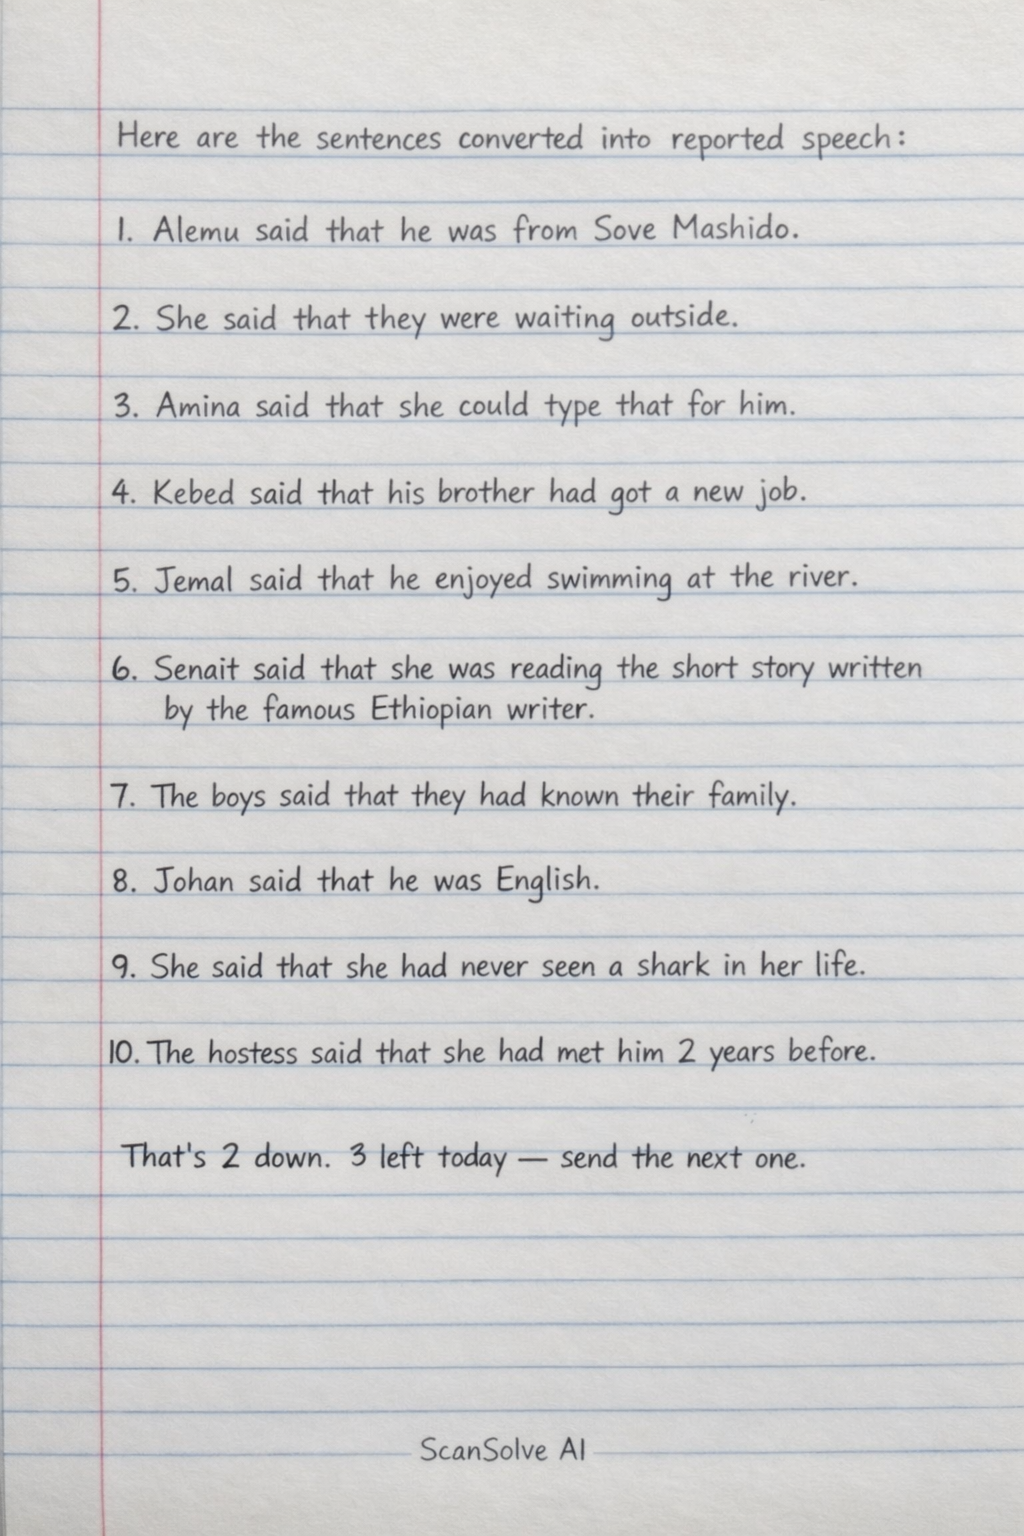 Here are the sentences converted into reported speech:
1. Alemu said that he was from Sove Mashido.
2. She said that they were waiting outside.
3. Amina said that she could type that for him.
4. Kebed said that his brother had got a new job.
5. Jemal said that he enjoyed swimming at the river.
6. Senait said that she was reading the short story written
by the famous Ethiopian writer.
7. The boys said that they had known their family.
8. Johan said that he was English.
9. She said that she had never seen a shark in her life.
10. The hostess said that she had met him 2 years before.
That's 2 down. 3 left today — send the next one.
ScanSolve AI